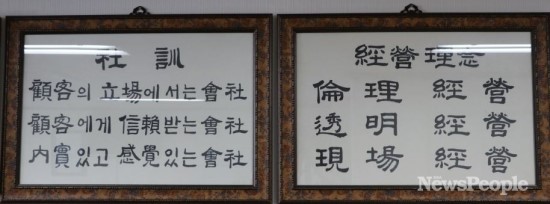 社訓
顧客의 立場에서는 會社
顧客에게 信賴받는 會社
內實있고 感覺있는 會社
經營理念
倫理 經營
透明 經營
現場 經營
NewsPeople